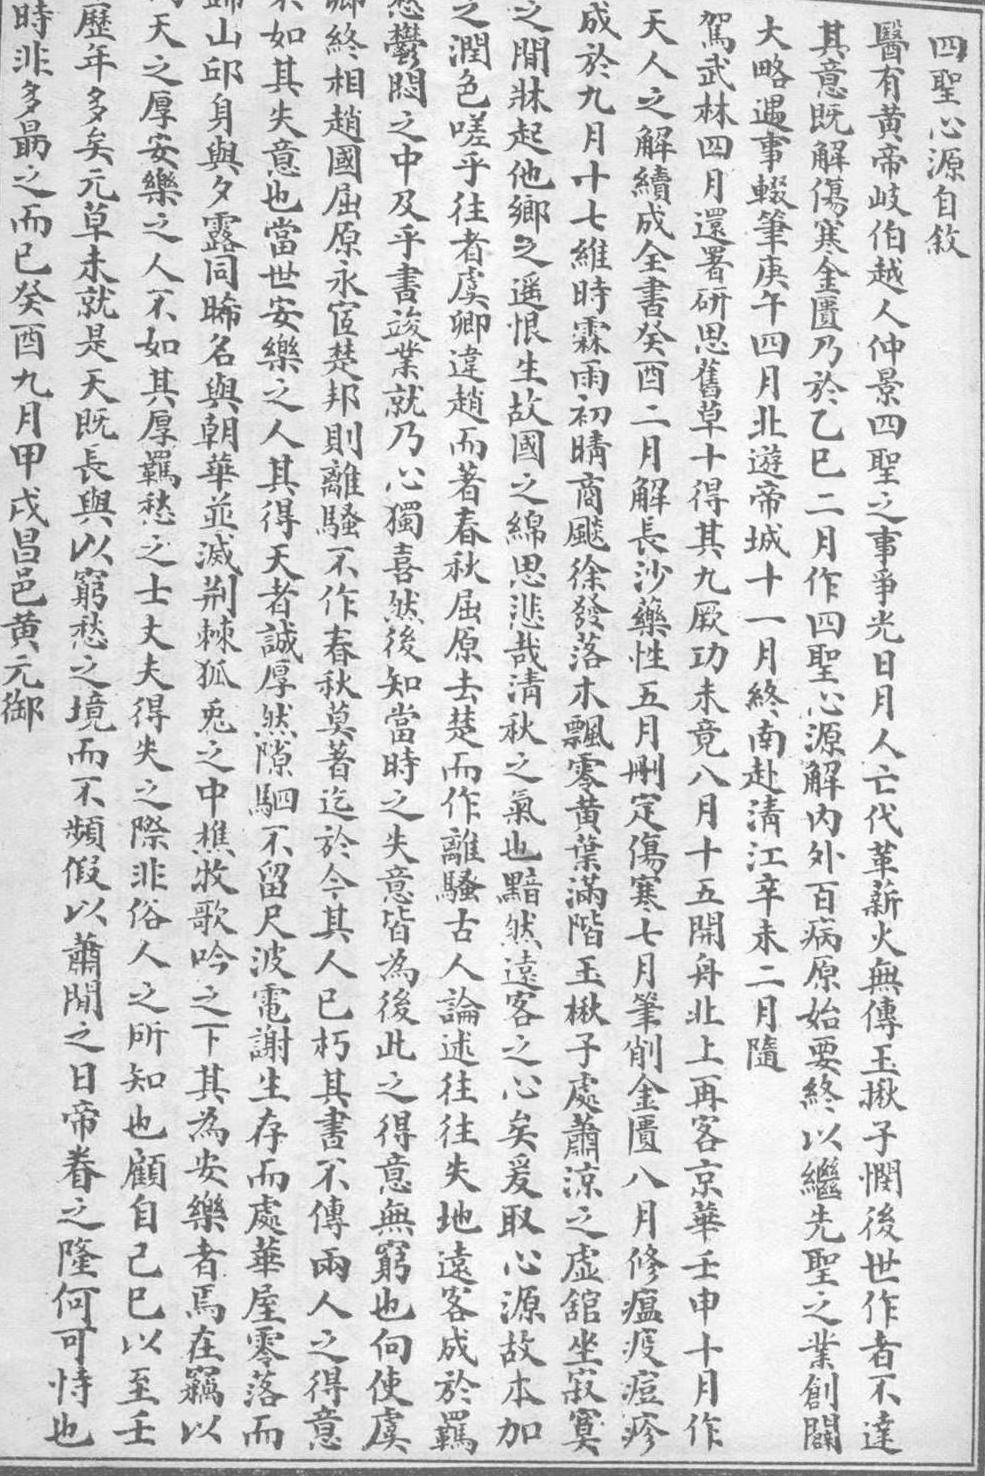 四聖心源自敘
醫有黃帝岐伯越人仲景四聖之事爭光日月人亡代革薪火無傳玉楸子憫後世作者不達
其意既解傷寒金匱乃於乙巳二月作四聖心源解內外百病原始要終以繼先聖之業創闢
大略遇事輟筆庚午四月北遊帝城十一月終南赴清江辛未二月隨
駕武林四月還署研思舊草十得其九厥功未竟八月十五開舟北上再客京華壬申十月作
天人之解續成全書癸酉二月解長沙藥性五月刪定傷寒七月筆削金匱八月修瘟疫痘疹
成於九月十七維時霖雨初晴商飈徐發落木飄零黃葉滿階玉楸子處蕭涼之虛舘坐寂寞
之間牀起他鄉之遥恨生故國之綿思悲哉清秋之氣也黯然遠客之心矣爰取心源故本加
之潤色嗟乎往者虞卿違趙而著春秋屈原去楚而作離騷古人論述往往失地遠客成於羈
愁鬱悶之中及乎書竣業就乃心獨喜然後知當時之失意皆為後此之得意無窮也向使虞
卿終相趙國屈原永宦楚邦則離騷不作春秋莫著迄於今其人已朽其書不傳兩人之得意
不如其失意也當世安樂之人其得天者誠厚然隙駟不留尺波電謝生存而處華屋零落而
歸山邱身與夕露同晞名與朝華並滅荆棘狐兎之中樵牧歌吟之下其為安樂者焉在竊以
天之厚安樂之人不如其厚羈愁之士丈夫得失之際非俗人之所知也顧自己巳以至壬
歷年多矣元草未就是天既長與以窮愁之境而不頻假以蕭閒之日帝眷之隆何可恃也
時非多勗之而已癸酉九月甲戌昌邑黃元御